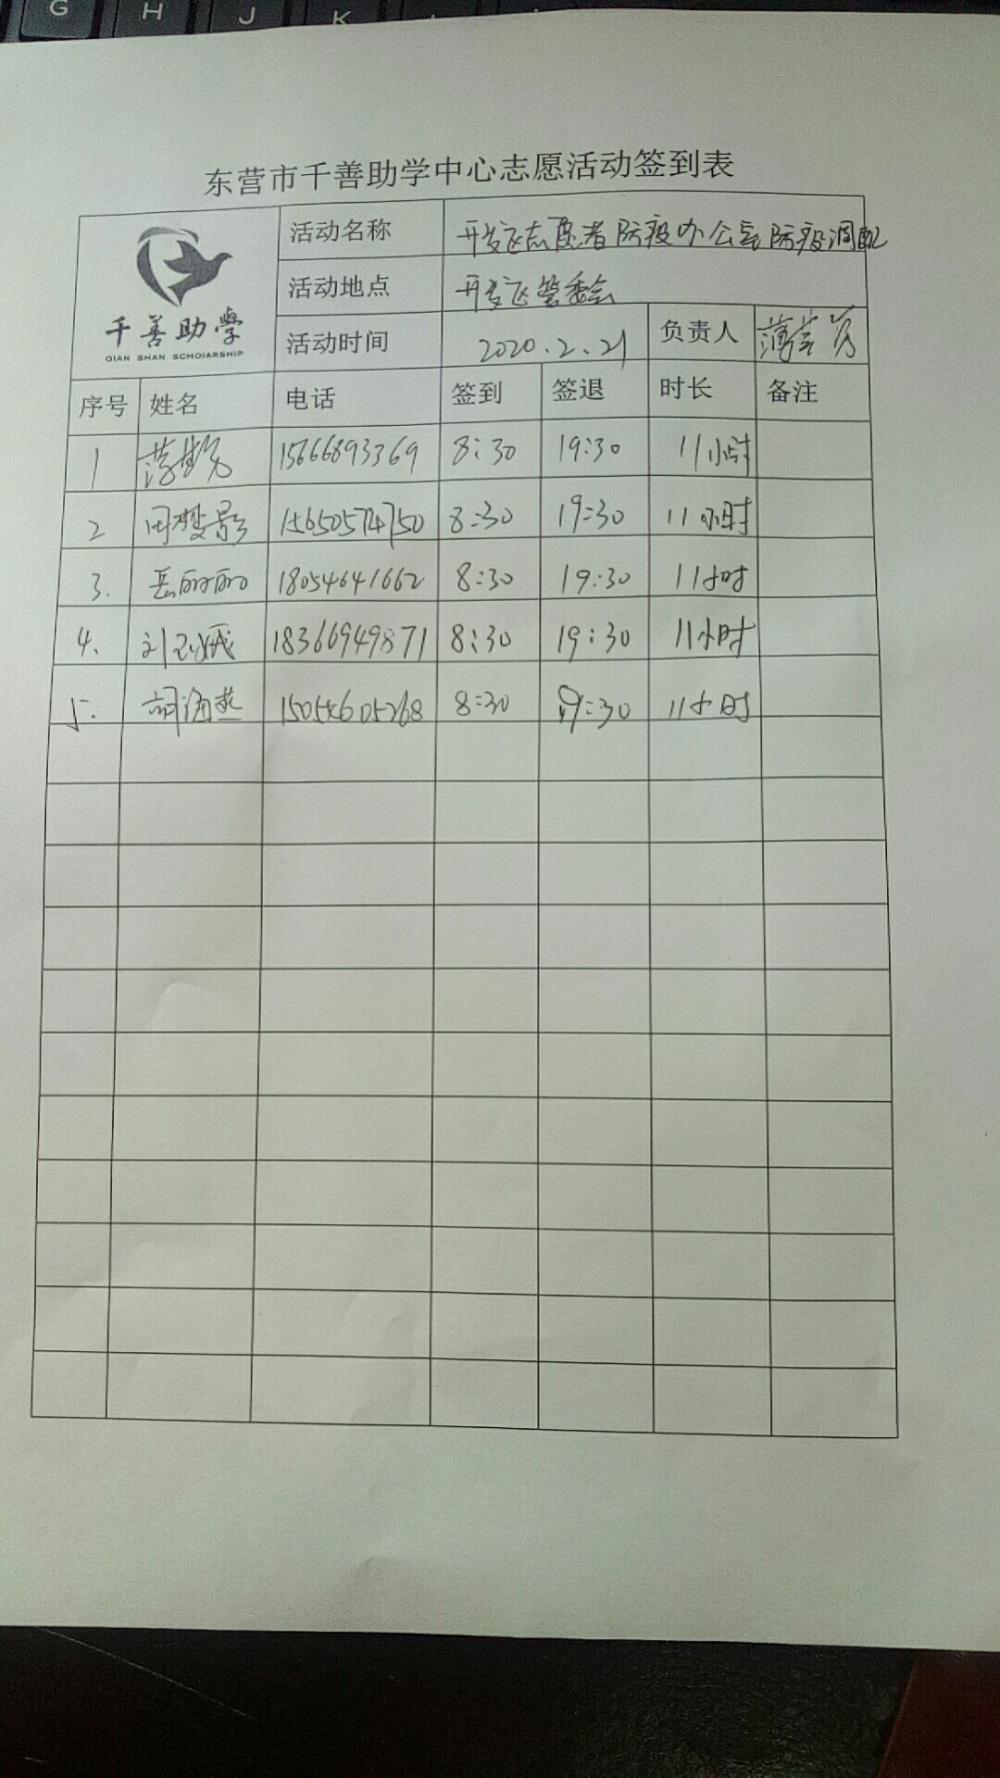 G H J K
东营市千善助学中心志愿活动签到表
千善助學
QIAN SHAN SCHOIARSHIP
活动名称 开发区志愿者防疫办公室防疫调配
活动地点 开发区管委会
活动时间 2020.2.21 负责人
序号 姓名 电话 签到 签退 时长 备注
1 15666893369 8:30 19:30 11小时
2 田梦影 15650574750 8:30 19:30 11小时
3. 岳丽丽 18054641662 8:30 19:30 11小时
4. 18366949871 8:30 19:30 11小时
5. 胡海燕 15054605268 8:30 19:30 11小时